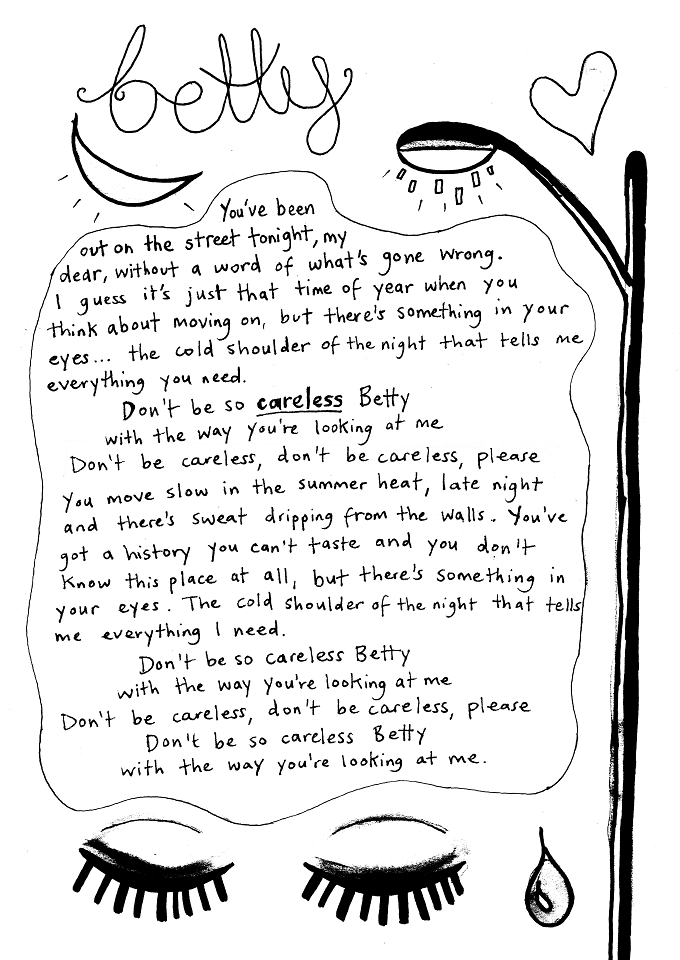 betty
You've been
out on the street tonight, my
dear, without a word of what's gone wrong.
I guess it's just that time of year when you
think about moving on, but there's something in your
eyes... the cold shoulder of the night that tells me
everything you need.
Don't be so careless Betty
with the way you're looking at me
Don't be careless, don't be careless, please
You move slow in the summer heat, late night
and there's sweat dripping from the walls. You've
got a history you can't taste and you don't
know this place at all, but there's something in
your eyes. The cold shoulder of the night that tells
me everything I need.
Don't be so careless Betty
with the way you're looking at me
Don't be careless, don't be careless, please
Don't be so careless Betty
with the way you're looking at me.